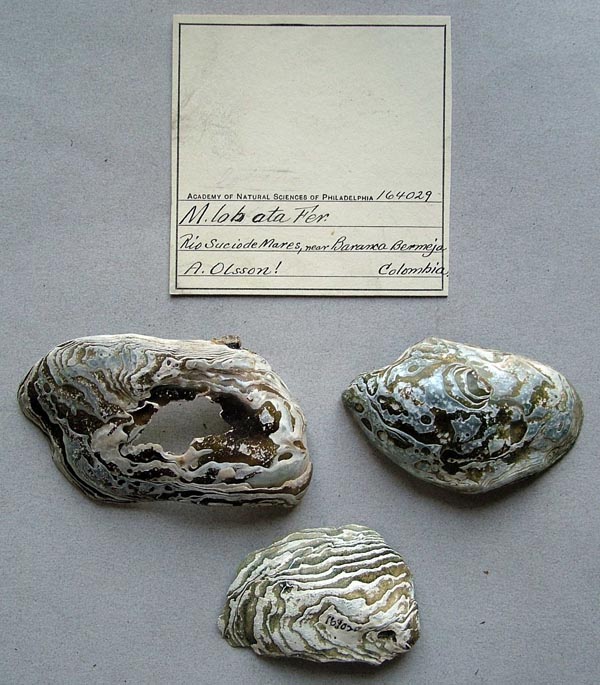 ACADEMY OF NATURAL SCIENCES OF PHILADELPHIA 164029
M. lobata Fér.
Rio Sucio de Mares, near Baranca Bermeja
A. Olsson! Colombia.